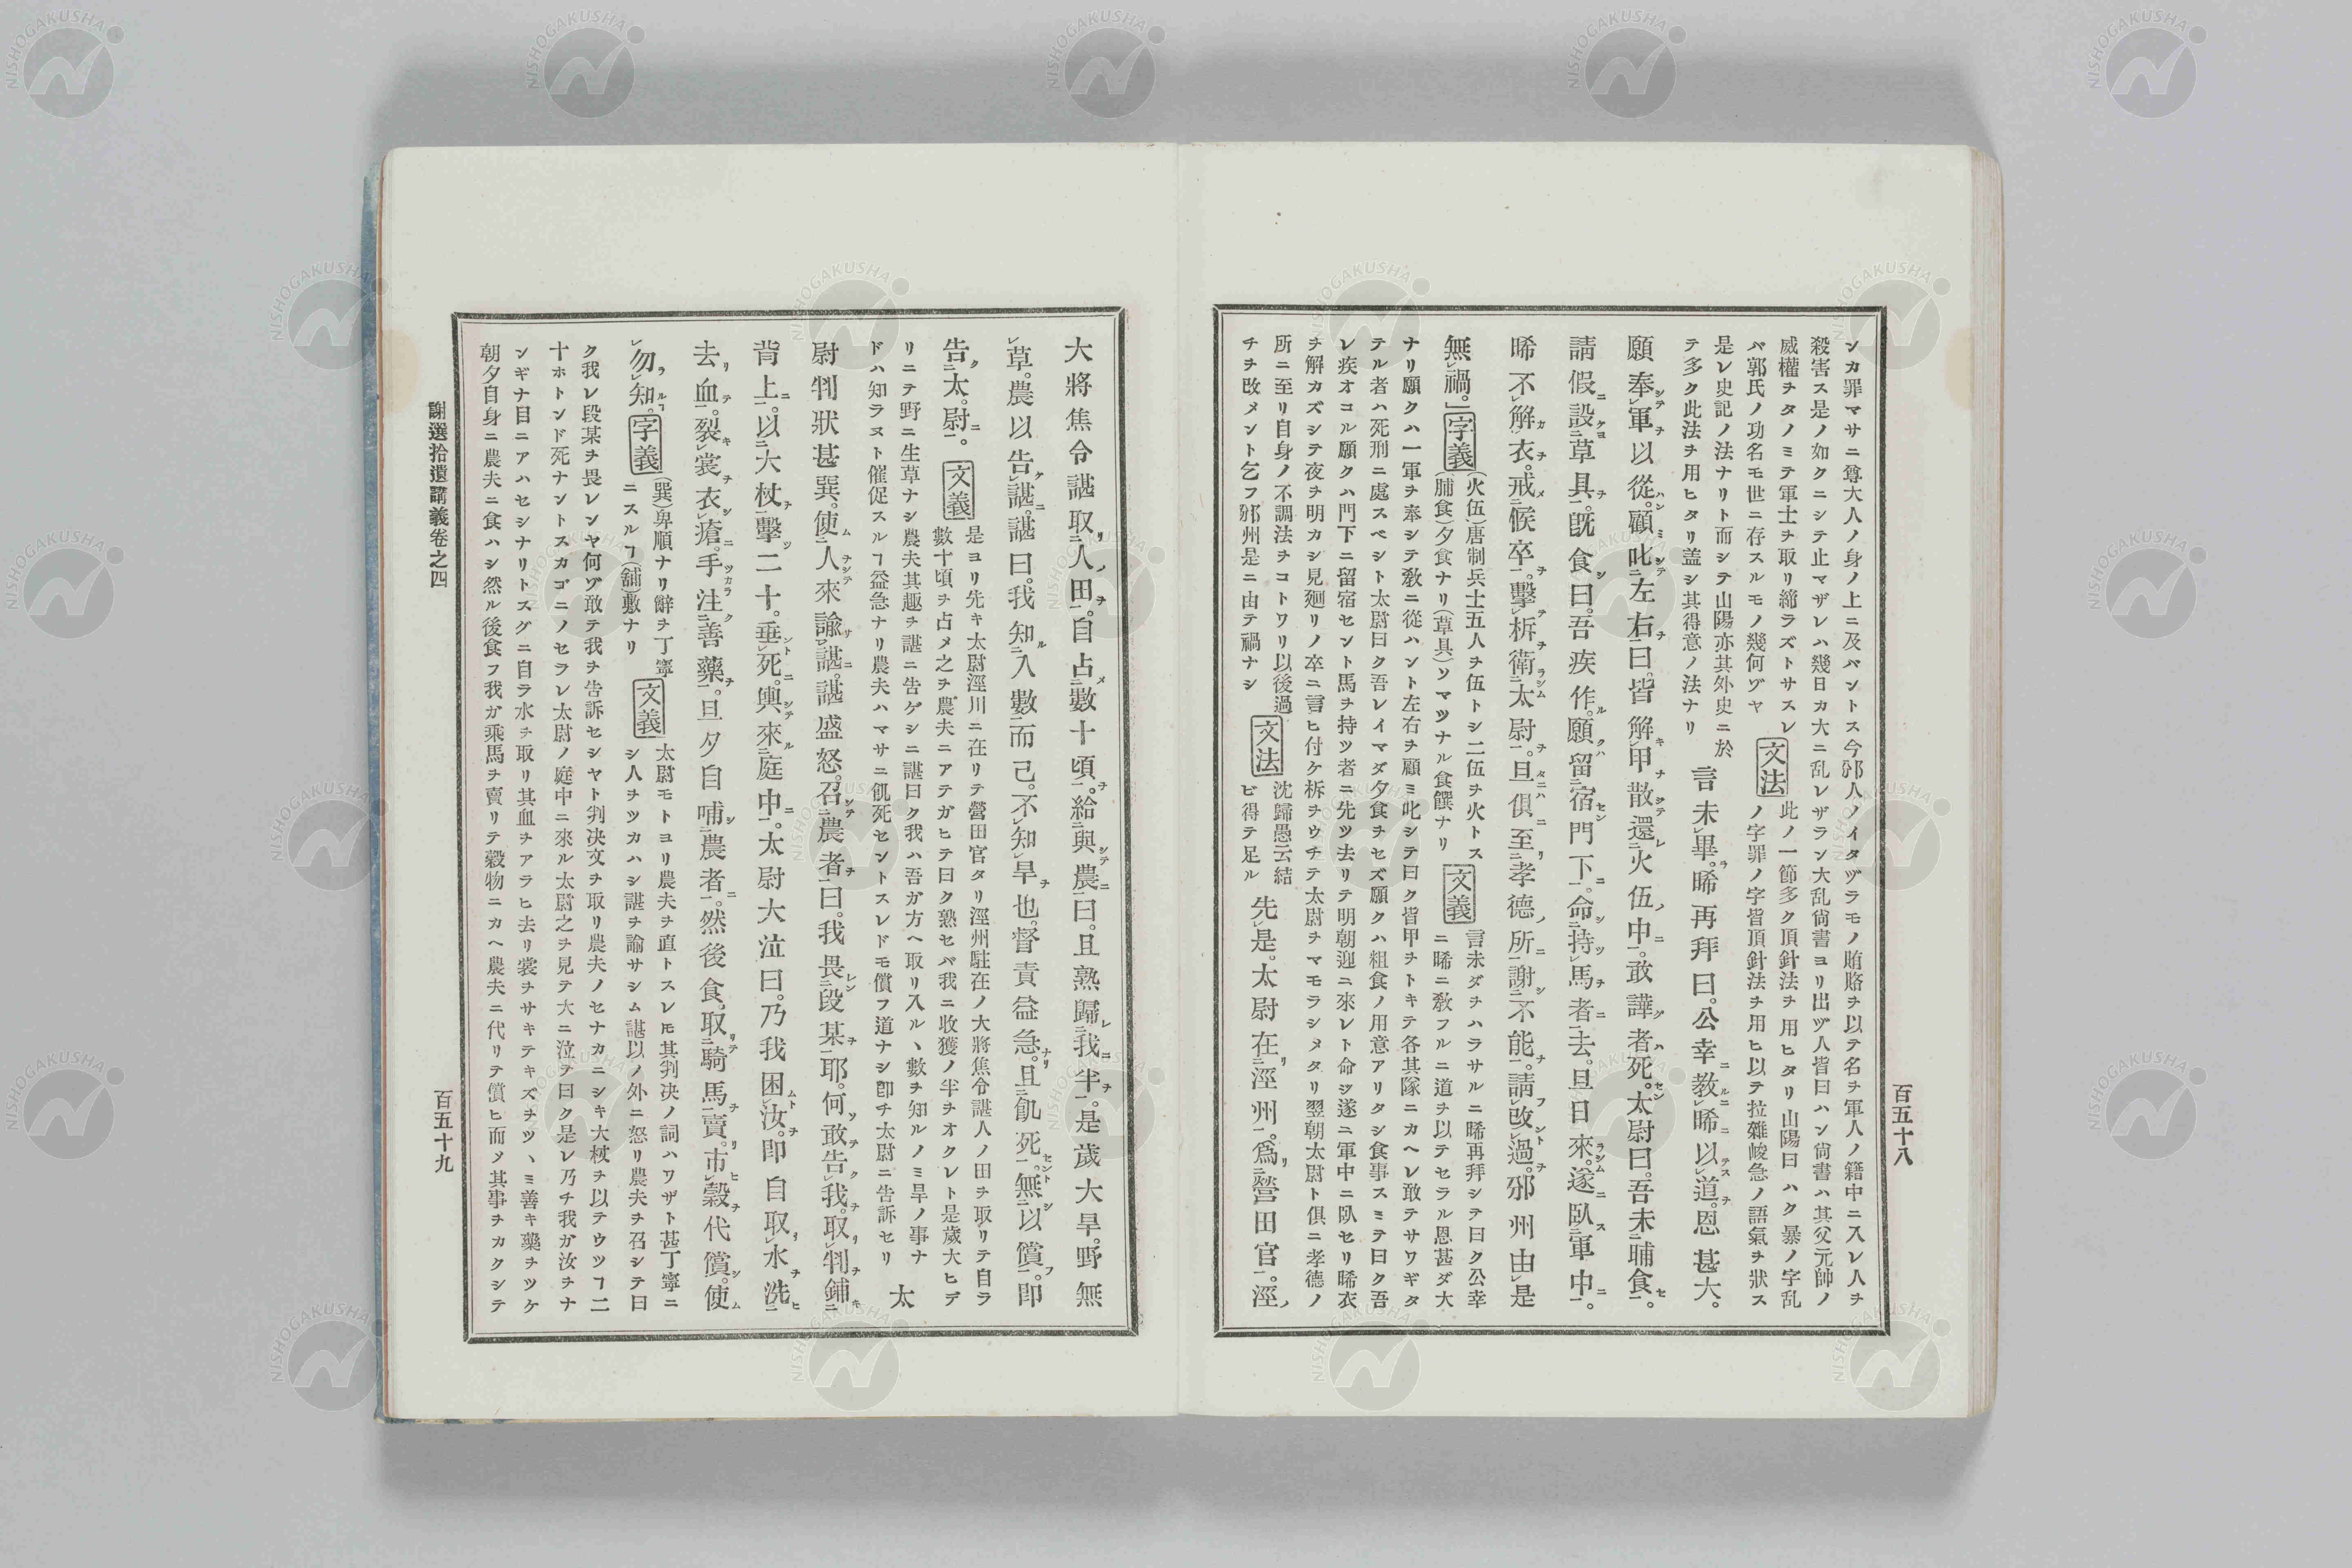 百五十八
ンカ罪マサニ尊大人ノ身ノ上ニ及バントス今邠人ノイタヅラモノ賄賂ヲ以テ名ヲ軍人ノ籍中ニ入レ人ヲ
殺害ス是ノ如クニシテ止マザレハ幾日カ大ニ乱レザラン大乱尙書ヨリ出ヅ人皆曰ハン尙書ハ其父元帥ノ
威權ヲタノミテ軍士ヲ取リ締ラズトサスレ
バ郭氏ノ功名モ世ニ存スルモノ幾何ゾヤ
文法
此ノ一節多ク頂針法ヲ用ヒタリ山陽曰ハク暴ノ字乱
ノ字罪ノ字皆頂針法ヲ用ヒ以テ拉雜峻急ノ語氣ヲ狀ス
是レ史記ノ法ナリト而シテ山陽亦其外史ニ於
テ多ク此法ヲ用ヒタリ盖シ其得意ノ法ナリ
言未畢。晞再拜曰。公幸敎晞以道。恩甚大。
願奉軍以從。顧叱左右曰。皆解甲散還火伍中。敢譁者死。太尉曰。吾未晡食。
請假設草具。旣食曰。吾疾作。願留宿門下。命持馬者去。旦日來。遂臥軍中。
晞不解衣。戒候卒。擊柝衛太尉。旦俱至孝德所。謝不能。請改過。邠州由是
無禍。」
字義
(火伍)唐制兵士五人ヲ伍トシ二伍ヲ火トス
(脯食)夕食ナリ(草具)ソマツナル食饌ナリ
文義
言未ダヲハラサルニ晞再拜シテ曰ク公幸
ニ晞ニ敎フルニ道ヲ以テセラル恩甚ダ大
ナリ願クハ一軍ヲ奉シテ敎ニ從ハント左右ヲ顧ミ叱シテ曰ク皆甲ヲトキテ各其隊ニカヘレ敢テサワギタ
テル者ハ死刑ニ處スベシト太尉曰ク吾レイマダ夕食ヲセズ願クハ粗食ノ用意アリタシ食事スミテ曰ク吾
レ疾オコル願クハ門下ニ留宿セント馬ヲ持ツ者ニ先ツ去リテ明朝迎ニ來レト命シ遂ニ軍中ニ臥セリ晞衣
ヲ解カズシテ夜ヲ明カシ見廻リノ卒ニ言ヒ付ケ柝ヲウチテ太尉ヲマモラシメタリ翌朝太尉ト俱ニ孝德ノ
所ニ至リ自身ノ不調法ヲコトワリ以後過
チヲ改メント乞フ邠州是ニ由テ禍ナシ
文法
沈歸愚云結
ビ得テ足ル
先是。太尉在涇州。爲營田官。涇
大將焦令諶取人田。自占數十頃。給與農曰。且熟歸我半。是歲大旱。野無
草。農以告諶。諶曰。我知入數而已。不知旱也。督責益急。且飢死。無以償。卽
告太尉。
文義
是ヨリ先キ太尉涇川ニ在リテ營田官タリ涇州駐在ノ大將焦令諶人ノ田ヲ取リテ自ラ
數十頃ヲ占メ之ヲ農夫ニアテガヒテ曰ク熟セバ我ニ收獲ノ半ヲオクレト是歲大ヒデ
リニテ野ニ生草ナシ農夫其趣ヲ諶ニ告ゲシニ諶曰ク我ハ吾ガ方ヘ取リ入ルヽ數ヲ知ルノミ旱ノ事ナ
ドハ知ラヌト催促スルヿ益急ナリ農夫ハマサニ飢死セントスレドモ償フ道ナシ卽チ太尉ニ告訴セリ
太
尉判狀甚巽。使人來諭諶。諶盛怒。召農者曰。我畏段某耶。何敢吿我。取判鋪
背上。以大杖擊二十。垂死。輿來庭中。太尉大泣曰。乃我困汝。卽自取水洗
去血。裂裳衣瘡。手注善藥。旦夕自哺農者。然後食。取騎馬賣。市穀代償。使
勿知。
字義
(巽)卑順ナリ辭ヲ丁寧
ニスルヿ(鋪)敷ナリ
文義
太尉モトヨリ農夫ヲ直トスレ𪜈其判決ノ詞ハワザト甚丁寧ニ
シ人ヲツカハシ諶ヲ諭サシム諶以ノ外ニ怒リ農夫ヲ召シテ曰
ク我レ段某ヲ畏レンヤ何ゾ敢テ我ヲ告訴セシヤト判决文ヲ取リ農夫ノセナカニシキ大杖ヲ以テウツヿ二
十ホトンド死ナントスカゴニノセラレ太尉ノ庭中ニ來ル太尉之ヲ見テ大ニ泣テ曰ク是レ乃チ我ガ汝ヲナ
ンギナ目ニアハセシナリトスグニ自ラ水ヲ取リ其血ヲアラヒ去リ裳ヲサキテキズヲツヽミ善キ藥ヲツケ
朝夕自身ニ農夫ニ食ハシ然ル後食フ我ガ乘馬ヲ賣リテ穀物ニカヘ農夫ニ代リテ償ヒ而メ其事ヲカクシテ
謝選拾遺講義卷之四
百五十九